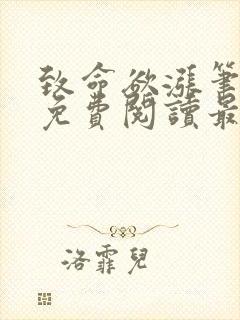 致命欲漲筆
免費閱讀最
洛霏兒